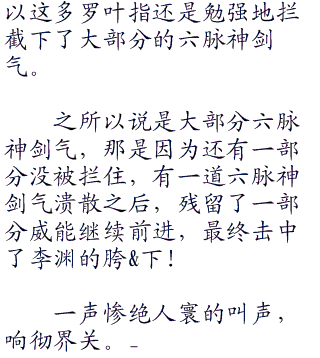 以这多罗叶指还是勉强地拦
截下了大部分的六脉神剑
气。
之所以说是大部分六脉
神剑气，那是因为还有一部
分没被拦住，有一道六脉神
剑气溃散之后，残留了一部
分威能继续前进，最终击中
了李渊的胯&下！
一声惨绝人寰的叫声，
响彻界关。_